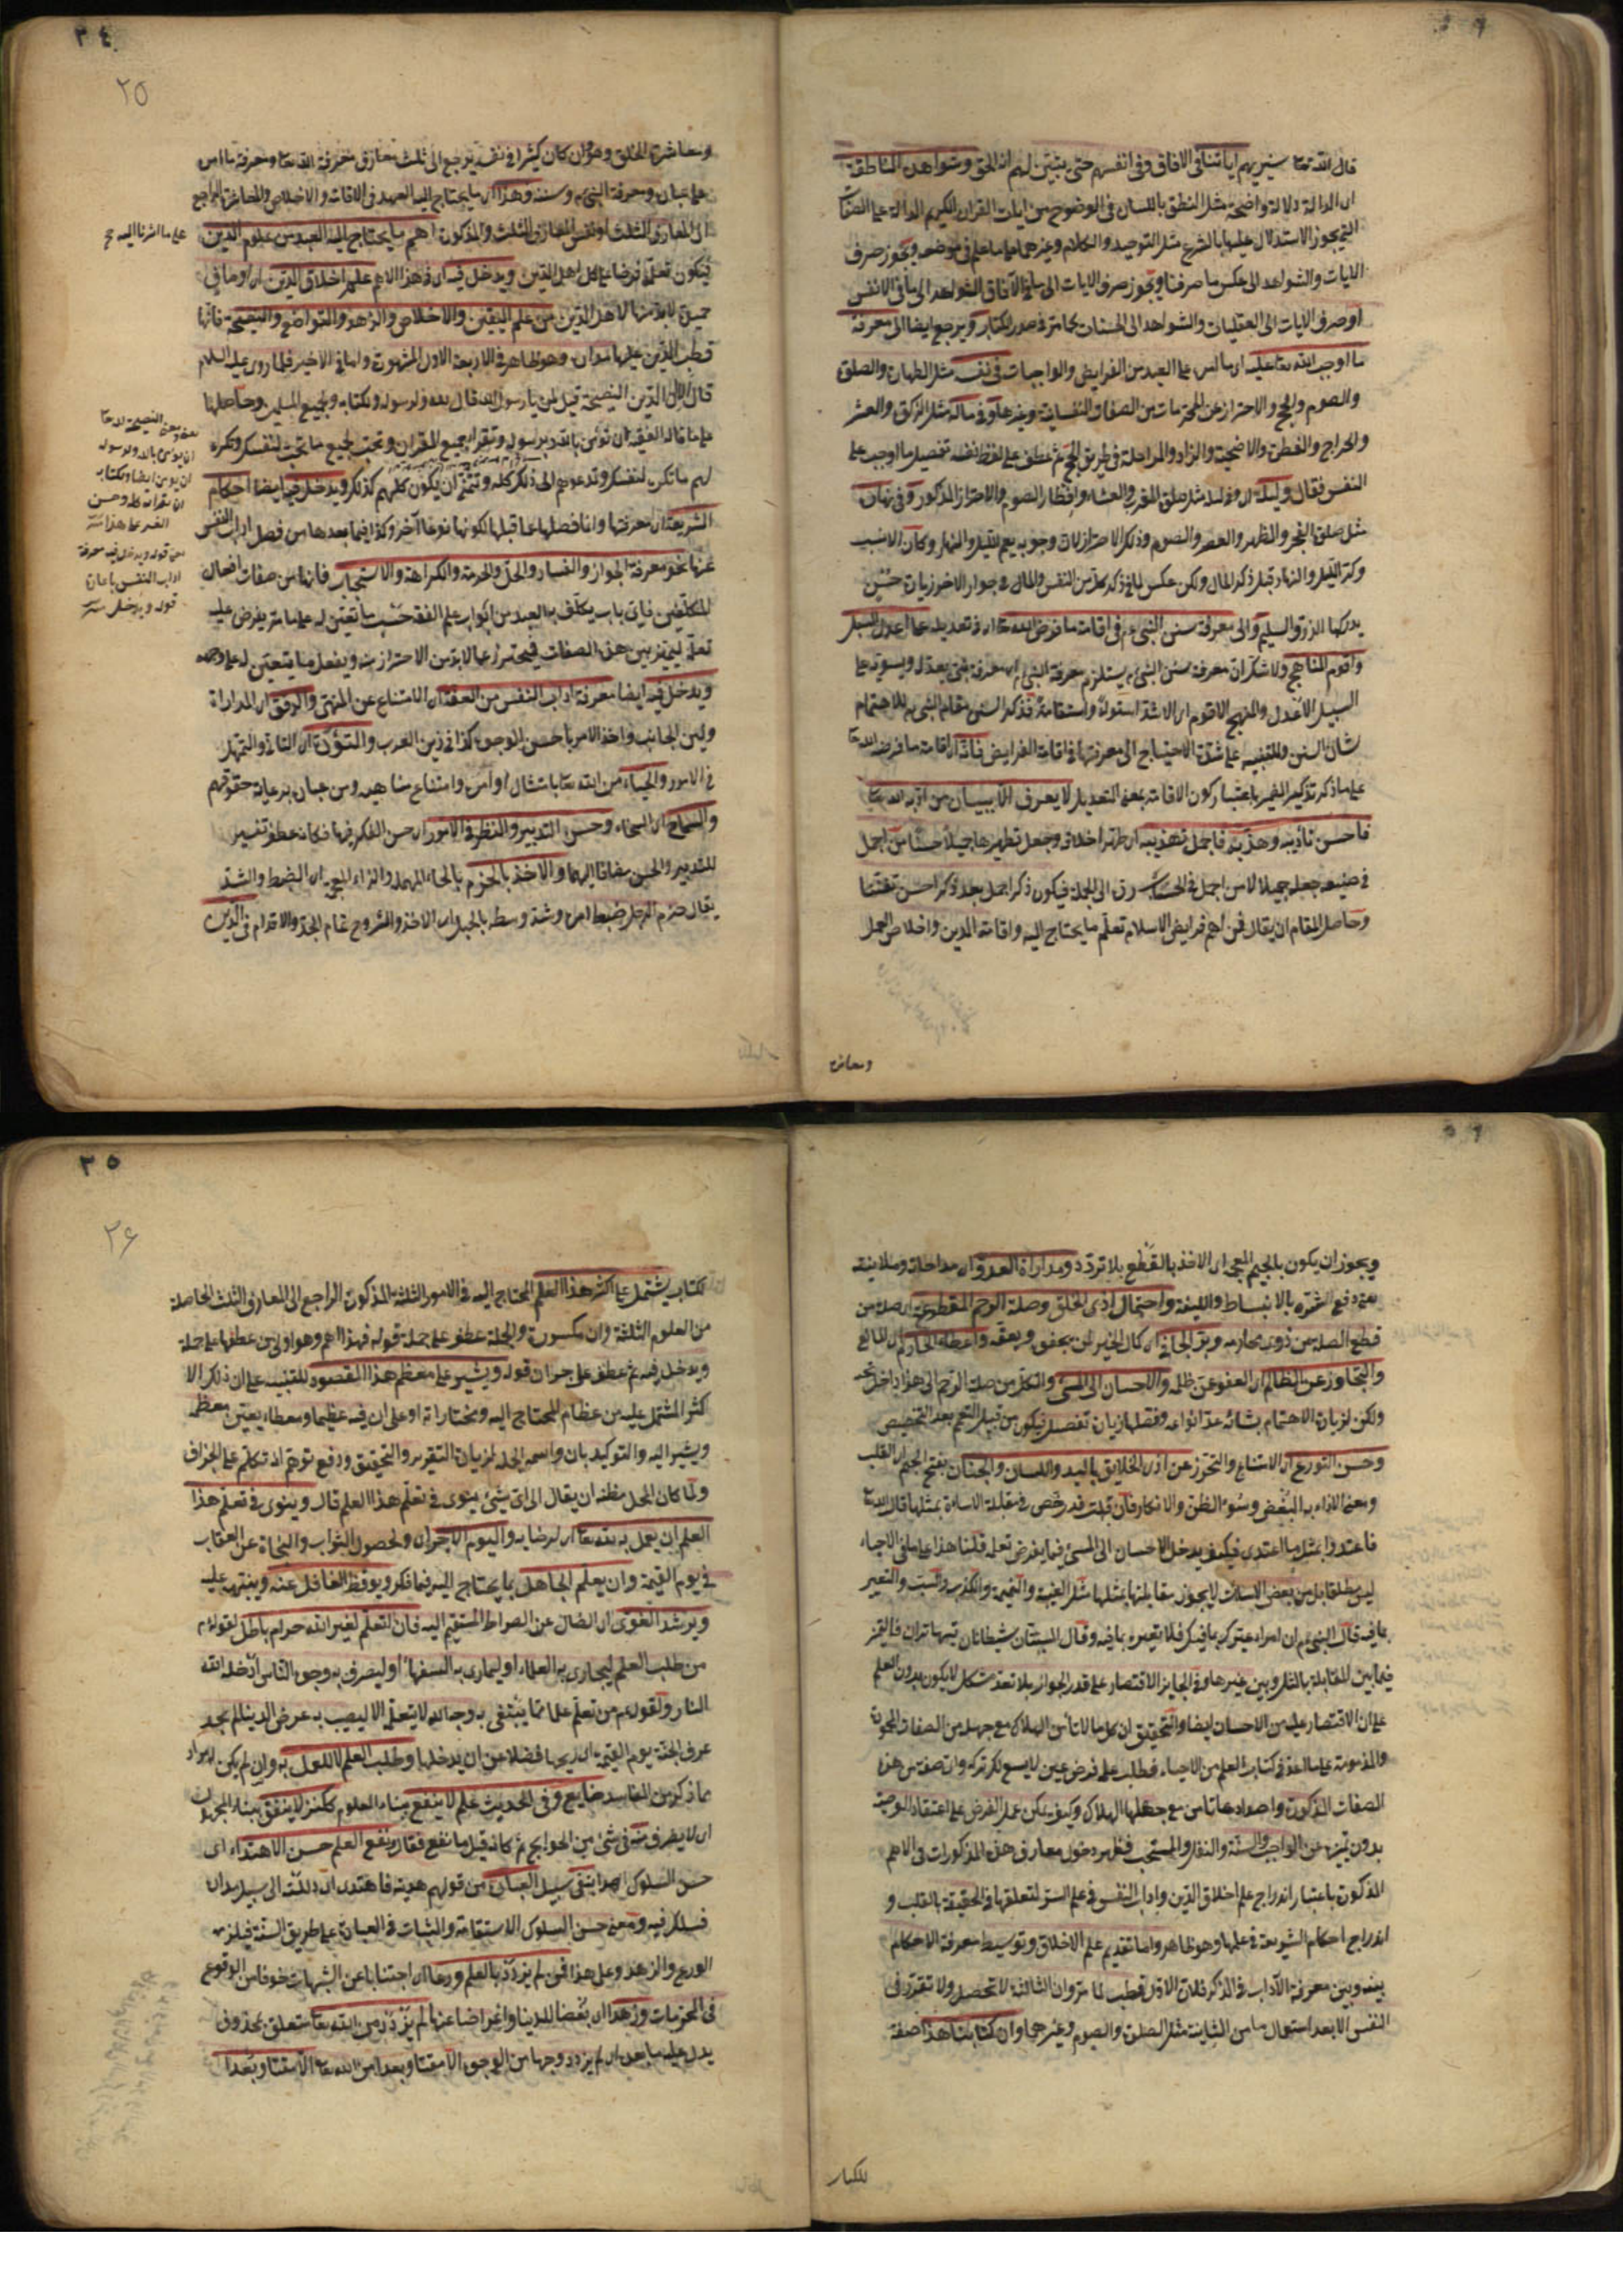 قال الله تعالى سنريهم آياتنا في الافاق وفي انفسهم حتى يتبين لهم انه الحق وشواهده الناطقة
اى الدالة دلالة واضحة مثل النطق باللسان في الوضوح من ايات القران الكريم الدالة على الصفات
التي يجوز الاستدلال عليها بالشرع مثل التوحيد والكلام وغيرهما على ما علم في موضعه ويجوز صرف
الايات والشواهد الى عكس ما صرفنا ويجوز صرف الايات الى ما في الآفاق والشواهد الى ما في الانفس
او صرف الايات الى العقليات والشواهد الى الحسيات كما مر في صدر الكتاب ويرجع ايضا الى معرفة
ما اوجب الله تعالى عليه اى ما امر على العبد من الفرايض والواجبات في نفسه مثل الطهارة والصلوة
والصوم والحج والاحتراز عن المحرمات من الصفات النفسانية وغيرها وفي ماله مثل الزكوة والعشر
والخراج والفطرة والاضحية والزاد والراحلة في طريق الحج ثم عطف على لفظ نفسه تفصيل ما اوجب على
النفس فقال وليله اى وفي ليله مثل صلوة المغرب والعشاء وافطار الصوم والاحتراز المذكور وفي نهاره
مثل صلوة الفجر والظهر والعصر والصوم وذلك الاحتراز لان وجوبه يعم الليل والنهار وكان الانسب
ذكر الليل والنهار قبل ذكر المال ولكن عكس لما في ذكر كل من النفس والمال في جوار الاخر زيادة حسن
يدركها الذوق السليم والى معرفة سنن النبي ءم في اقامة ما فرض الله تعالى اى في تعديله على اعدل السبل
واقوم المناهج ولا شك ان معرفة سنن النبي ءم يستلزم معرفة النبي
السبيل الاعدل والمنهج الاقوم اى الاشد استواء واستقامة فذكر السنن مقام النبي ءم للاهتمام
شان السنن والتنبيه على شدة الاحتياج الى معرفتها في اقامة الفرايض فانه اى اقامة ما فرضه الله تعالى
على ما ذكر تذكير الضمير باعتبار كون الاقامة بمعنى التعديل لا يعرف الا ببيان من ادبه الله تعالى
فاحسن تاديبه وهذبه فاجمل تهذيبه اى طهر اخلاقه وجعل تطهيرها جميلا حسنا من اجمل
في صنيعه جعله جميلا لا من اجمل في الحساب رده الى الجملة فيكون ذكر اجمل بعد ذكر احسن تفننا
وحاصل المقام ان يقال فمن اهم فرايض الاسلام تعلم ما يحتاج اليه واقامة الدين واخلاص العمل
ومعاشرة
٣٤
٢٥
ومعاشرة الخلق وهو وان كان كثيرا في نفسه يرجع الى ثلث معارف معرفة الله تعالى ومعرفة ما امر
على عباده ومعرفة النبي ءم وسنته وهذا اى ما يحتاج اليه العبد في الاقامة والاخلاص والمعاشرة الراجع
الى المعارف الثلث او نفس المعارف الثلث والمذكورة اهم ما يحتاج اليه العبد من علوم الدين
فيكون تعلمه فرضا على كل اهل الدين ويدخل فيه اى في هذا الاهم علم اخلاق الدين اى او ما في
حيزه لا بد منها لاهل الدين من علم اليقين والاخلاص والزهد والتواضع والنصيحة فانها
قطب الدين عليها مداره وهو ظاهر في الاربعة الاول المشهورة واما في الاخير فلما روى عليه السلام
قال الا ان الدين النصيحة قيل لمن يا رسول الله قال لله ولرسوله ولكتابه ولجميع المسلمين وحاصلها
على ما قاله الفقيه ان تؤمن بالله وبرسوله وتقرا بجميع القران وتحب لجميع ما تحب لنفسك وتكره
لهم ما تكره لنفسك وتدعوهم الى ذلك كله وتتمنى ان يكون كلهم كذلك ويدخل فيه ايضا احكام
الشريعة اى معرفتها وانما فصلها عما قبلها لكونها نوعا آخر وكذا فيما بعدها من فصل اداب النفس
عنها نحو معرفة الجواز والفساد والحل والحرمة والكراهة والاستحباب فانها من صفات افعال
المكلفين فاى باب يكلف به العبد من ابواب علم الفقه حسب ما تعين له على ما مر يفرض عليه
تعلمه ليتميز بين هذه الصفات فيحترز عما لا بد من الاحتراز منه ويفعل ما يتعين له على وجهه
ويدخل فيه ايضا معرفة اداب النفس من العفة اى الامتناع عن المنهى والرفق اى المداراة
ولين الجانب واخذ الامر باحسن الوجوه كذا في ديوان العرب والتؤدة اى التانى والتمهل
في الامور والحياء من الله تعالى بامتثال اوامره وامتناع مناهيه ومن عباده برعاية حقوقهم
والسماح اى السخاء وحسن التدبير والنظر في الامور اى حسن الفكر فيها فكانه عطف تفسير
للتدبير والحسن مضافا اليهما والاخذ بالحزم بالحاء المهملة والزاء المعجمة اى الضبط والشد
يقال حزم الرجل ضبط امره وشد وسطه بالحبل اى الاخذ والشروع بتمام الجد والاقدام في الدين
على ما اشرنا اليه صح
ان يؤمن بالله ولرسوله
ان يؤمن ايضا ولكتابه
ان يقراه كله وحسن
قوله ويدخل فيه معرفة
اداب النفس باعادة
قوله ويدخل
ويجوز ان يكون بالجيم المعجمة اى الاخذ بالقطع بلا تردد ومداراة العدو اى مداجاته وملاينته
بعنى دفع شره بالانبساط واللينة واحتمال اذى الخلق وصلة الرحم المقطوعة اى صلة من
قطع الصلة من ذوى محارمه وبر الجافى اى كان الخير لمن يجفوه ويعقه واعطاء الحارم اى المانع
والتجاوز عن الظالم اى العفو عن ظلمه والاحسان الى المسئ والكل من صلة الرحم الى هذا داخل تحته
ولكن لزيادة الاهتمام بشانه عد انواعه وفصلها زيادة تفصيل فيكون من قبيل التعميم بعد التخصيص
وحسن التورع اى الامتناع والتحرز عن اذى الخلايق باليد واللسان والجنان بفتح الجيم اى القلب
ومعنى الاذاء به البغض وسوء الظن والانكار فان قلت قد رخص في مقابلة الاساءة بمثلها قال الله تعالى
فاعتدوا بمثل ما اعتدى فكيف يدخل الاحسان الى المسئ فيما يفرض تعلمه قلنا هذا على ما في الاحياء
ليس مطلقا بل من بعض الاساءات لا يجوز مقابلتها بمثلها مثل الغيبة والنميمة والكذب والسب والتعيير
بما فيه قال النبي ءم ان امراء عيرك بما فيك فلا تعيره بما فيه وقال المستبان شيطانان يتهاتران فالتميز
فيما بين المقابلة بالمثل وبين غيرها وفي الجايز الاقتصار على قدر الجواز بلا تعد مشكل لا يكون بدون العلم
على ان الاقتصار عليه من الاحسان ايضا والتحقيق ان كل ما لا تامن الهلاك مع جهله من الصفات المحمودة
والمذمومة على ما عده في كتاب العلم من الاحياء فطلب علمه فرض عين لا يسع لك تركه وان صفة من هذه
الصفات المذكورة واضدادها تامن مع جهلها الهلاك وكيف يمكن عمل الفرض على اعتقاد الوجيه
بدون تميزه عن الواجب والسنة والنفل والمستحب فظهر دخول معارف هذه المذكورات في الاهم
المذكورة باعتبار اندراج علم اخلاق الدين واداب النفس في علم السر لتعلقها في الحقيقة بالقلب و
اندراج احكام الشريعة في علمها وهو ظاهر واما تقديم علم الاخلاق وتوسيط معرفة الاحكام
بينه وبين معرفة الآداب في الذكر فلان الاول قطب لما مر وان الثالثة لا تحصل ولا تتقرر في
النفس الا بعد استعمال ما من الثانية مثل الصلوة والصوم وغيرهما وان كتابنا هذا صفة
للكتاب
٣٥
٢٦
لكتاب يشتمل على اكثر هذا العلم المحتاج اليه في الامور الثلثة المذكورة الراجع الى المعارف الثلث الحاصلة
من العلوم الثلثة وان مكسورة والجملة عطف على جملة قوله فهذا اهم وهو اولى من عطفها على جملة
ويدخل فيه ثم عطف على خبر ان قوله ويشير على معظم هذا المقصود للتنبيه على ان ذلك الا
كثر المشتمل عليه من عظام المحتاج اليه ومختاراته او على ان فيه عظيما ومعظما يعين معظمه
ويشير اليه والتوكيد بان واسمية الجملة لزيادة التقرير والتحقيق ودفع توهم انه تكلم على الجزاف
ولما كان المحل مظنة ان يقال الى اى شئ ينوى في تعلم هذا العلم قال وينوى في تعلم هذا
العلم ان يعمل به لله تعالى اى لرضاه واليوم الاخر اى ولحصول الثواب والنجاة عن العقاب
في يوم القيمة وان يعلم الجاهل بما يحتاج اليه فيما ذكر ويوقظ الغافل عنه وينبهه عليه
ويرشد الغوى اى الضال عن الصراط المستقيم اليه فان التعلم لغير الله حرام باطل لقوله ءم
من طلب العلم ليجارى به العلماء او ليمارى به السفهاء او ليصرف به وجوه الناس ادخله الله
النار ولقوله ءم من تعلم علما مما يبتغى به وجه الله لا يتعلمه الا ليصيب به عرض الدنيا لم يجد
عرف الجنة يوم القيمة اى ريحها فضلا عن ان يدخلها وطلب العلم لا للعمل به وان لم يكن لايراد
ما ذكر من المفاسد ضايع وفي الحديث علم لا ينفع ككنز لا ينفق
اى لا يصرف منه في شئ من الحوايج ثم كانه قيل ما نفع فقال ونفع العلم حسن الاهتداء اى
حسن السلوك في سبيل العبادة من قولهم هديته فاهتدى اى دللته الى سبيل مراده
فسلك فيه ومعنى حسن السلوك الاستقامة والثبات في العبادة على طريق السنة فيلزمه
الورع والزهد وعلى هذا فمن لم يزدد بالعلم ورعا اى اجتنابا عن الشبهات خوفا من الوقوع
في المحرمات وزهدا اى بغضا للدنيا واعراضا عنها لم يزدد من الله تعالى متعلق بمحذوف
يدل عليه ما بعده اى لم يزدد وجها من الوجوه الا مقتا وبعدا من الله تعالى الا مقتا وبعدا